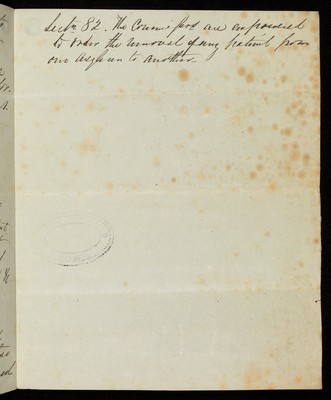 Sectn 82. The Commissrs are empowered
to order the removal of any patient from
one asylum to another.